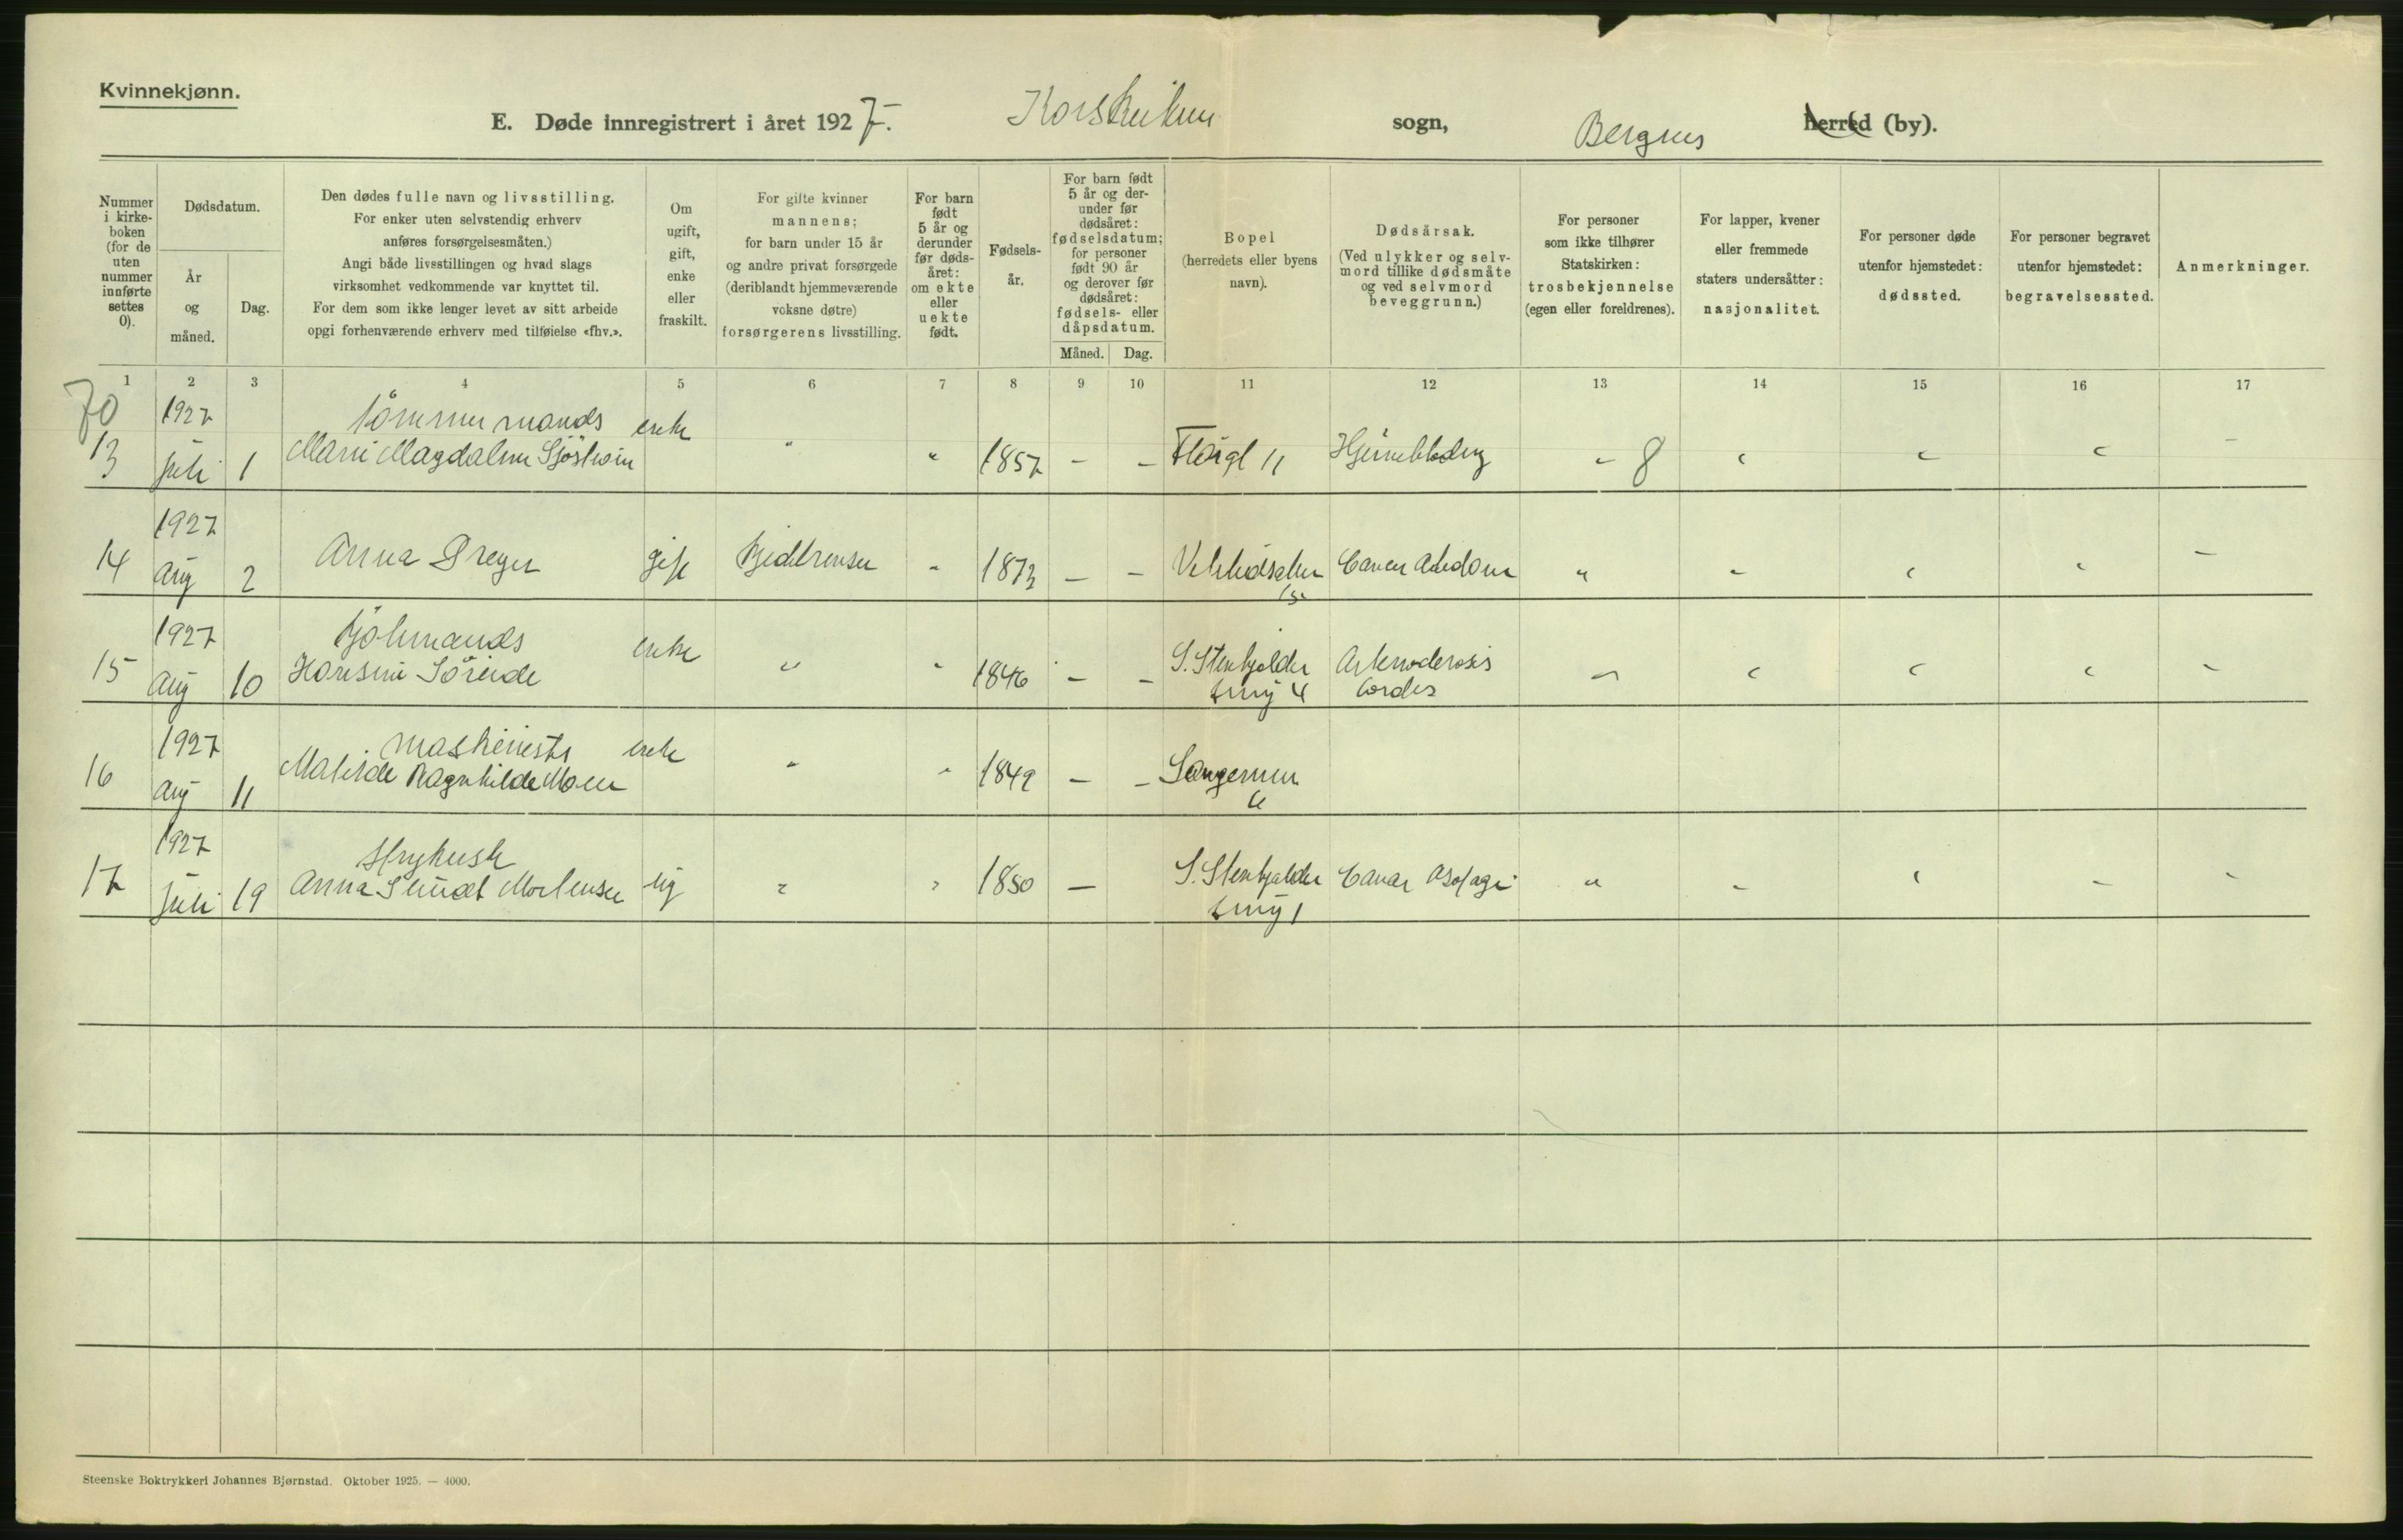 Kvinnekjønn.
E. Døde innregistrert i året 1927. Korskirken sogn, Bergens herred (by).
Nummer i kirke- boken (for de uten nummer innførte settes 0).
Dødsdatum.
År og måned.
Dag.
Den dødes fulle navn og livsstilling.
For enker uten selvstendig erhverv
anføres forsørgelsesmåten.)
Angi både livsstillingen og hvad slags
virksomhet vedkommende var knyttet til.
For dem som ikke lenger levet av sitt arbeide
opgi forhenværende erhverv med tilføielse «fhv.».
Om ugift, gift, enke eller fraskilt.
For gifte kvinner
mannens;
for barn under 15 år
og andre privat forsørgede
(deriblandt hjemmeværende
voksne døtre)
forsørgerens livsstilling.
For barn født 5 år og derunder før døds- året: om ekte eller uekte født.
Fødsels- år.
For barn født 5 år og der- under før dødsåret: fødselsdatum; for personer født 90 år og derover før dødsåret: fødsels- eller dåpsdatum.
Måned. Dag.
Bopel
(herredets eller byens
navn).
Dødsårsak.
(Ved ulykker og selv-
mord tillike dødsmåte
og ved selvmord
beveggrunn.)
For personer
som ikke tilhører
Statskirken:
trosbekjennelse
(egen eller foreldrenes).
For lapper, kvener
eller fremmede
staters undersåtter:
nasjonalitet.
For personer døde
utenfor hjemstedet:
dødssted.
For personer begravet
utenfor hjemstedet:
begravelsessted.
Anmerkninger.
1 2 3 4 5 6 7 8 9 10 11 12 13 14 15 16 17
70 1927 Tømmermands enke
13 Juli 1 Marie Magdalene Sjöstrøm " " 1857 - - Fløigt 11 Hjerneblødng " 8 " " " -
1927
14 Aug 2 Anna Dreyer gift " 1873 - - " - " " -
Cancer Abdom
1927 enke
15 Aug 10 Søreide " " 1846 - - S. Stenkjelder Arteriosclerosis " " " " -
smug 4 Cordis
1927 Maskinists enke
16 Aug 11 Matilde Ragnhilde Moen " " 1849 - -
1927 Strykerske
17 Juli 19 Anna Mortensen ug " " 1850 - S. Stenkjelder Cancer Øsofagi " - " - -
smug 1
Steenske Boktrykkeri Johannes Bjørnstad. Oktober 1925. — 4000.